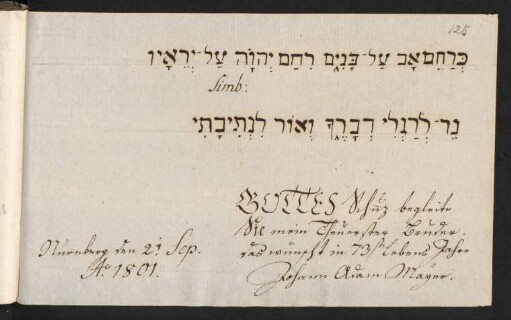 125
כְּרַחֵם אָב עַל־בָּנִים רִחַם יְהוָֹה עַל־יְרֵאָיו
Simb:
נֵר־לְרַגְלִי דְבָרֶךָ וְאוֹר לִנְתִיבָתִי
GOTTES Schuz begleite
Sie mein Theuerster Bruder.
das wünscht in 73st Lebens Jahre
Johann Adam Mayer.
Nürnberg den 21 Sep.
Ao 1801.